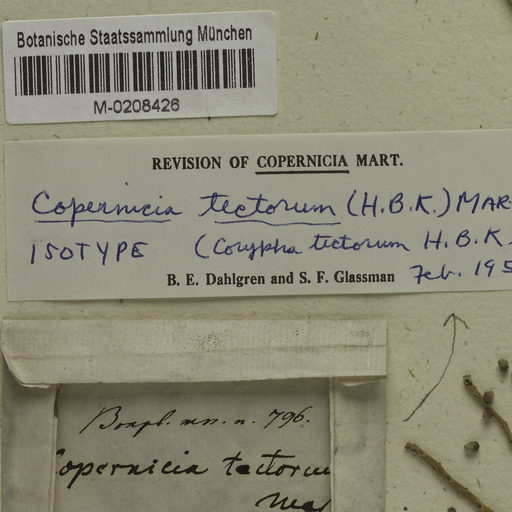 Botanische Staatssammlung München
M-0208426
REVISION OF COPERNICIA MART.
Copernicia tectorum (H.B.K.) MAR
ISOTYPE (Corypha tectorum H.B.K.
B. E. Dahlgren and S. F. Glassman Feb. 195
Bonpl. mss. n. 796.
Copernicia tectorum
Mar